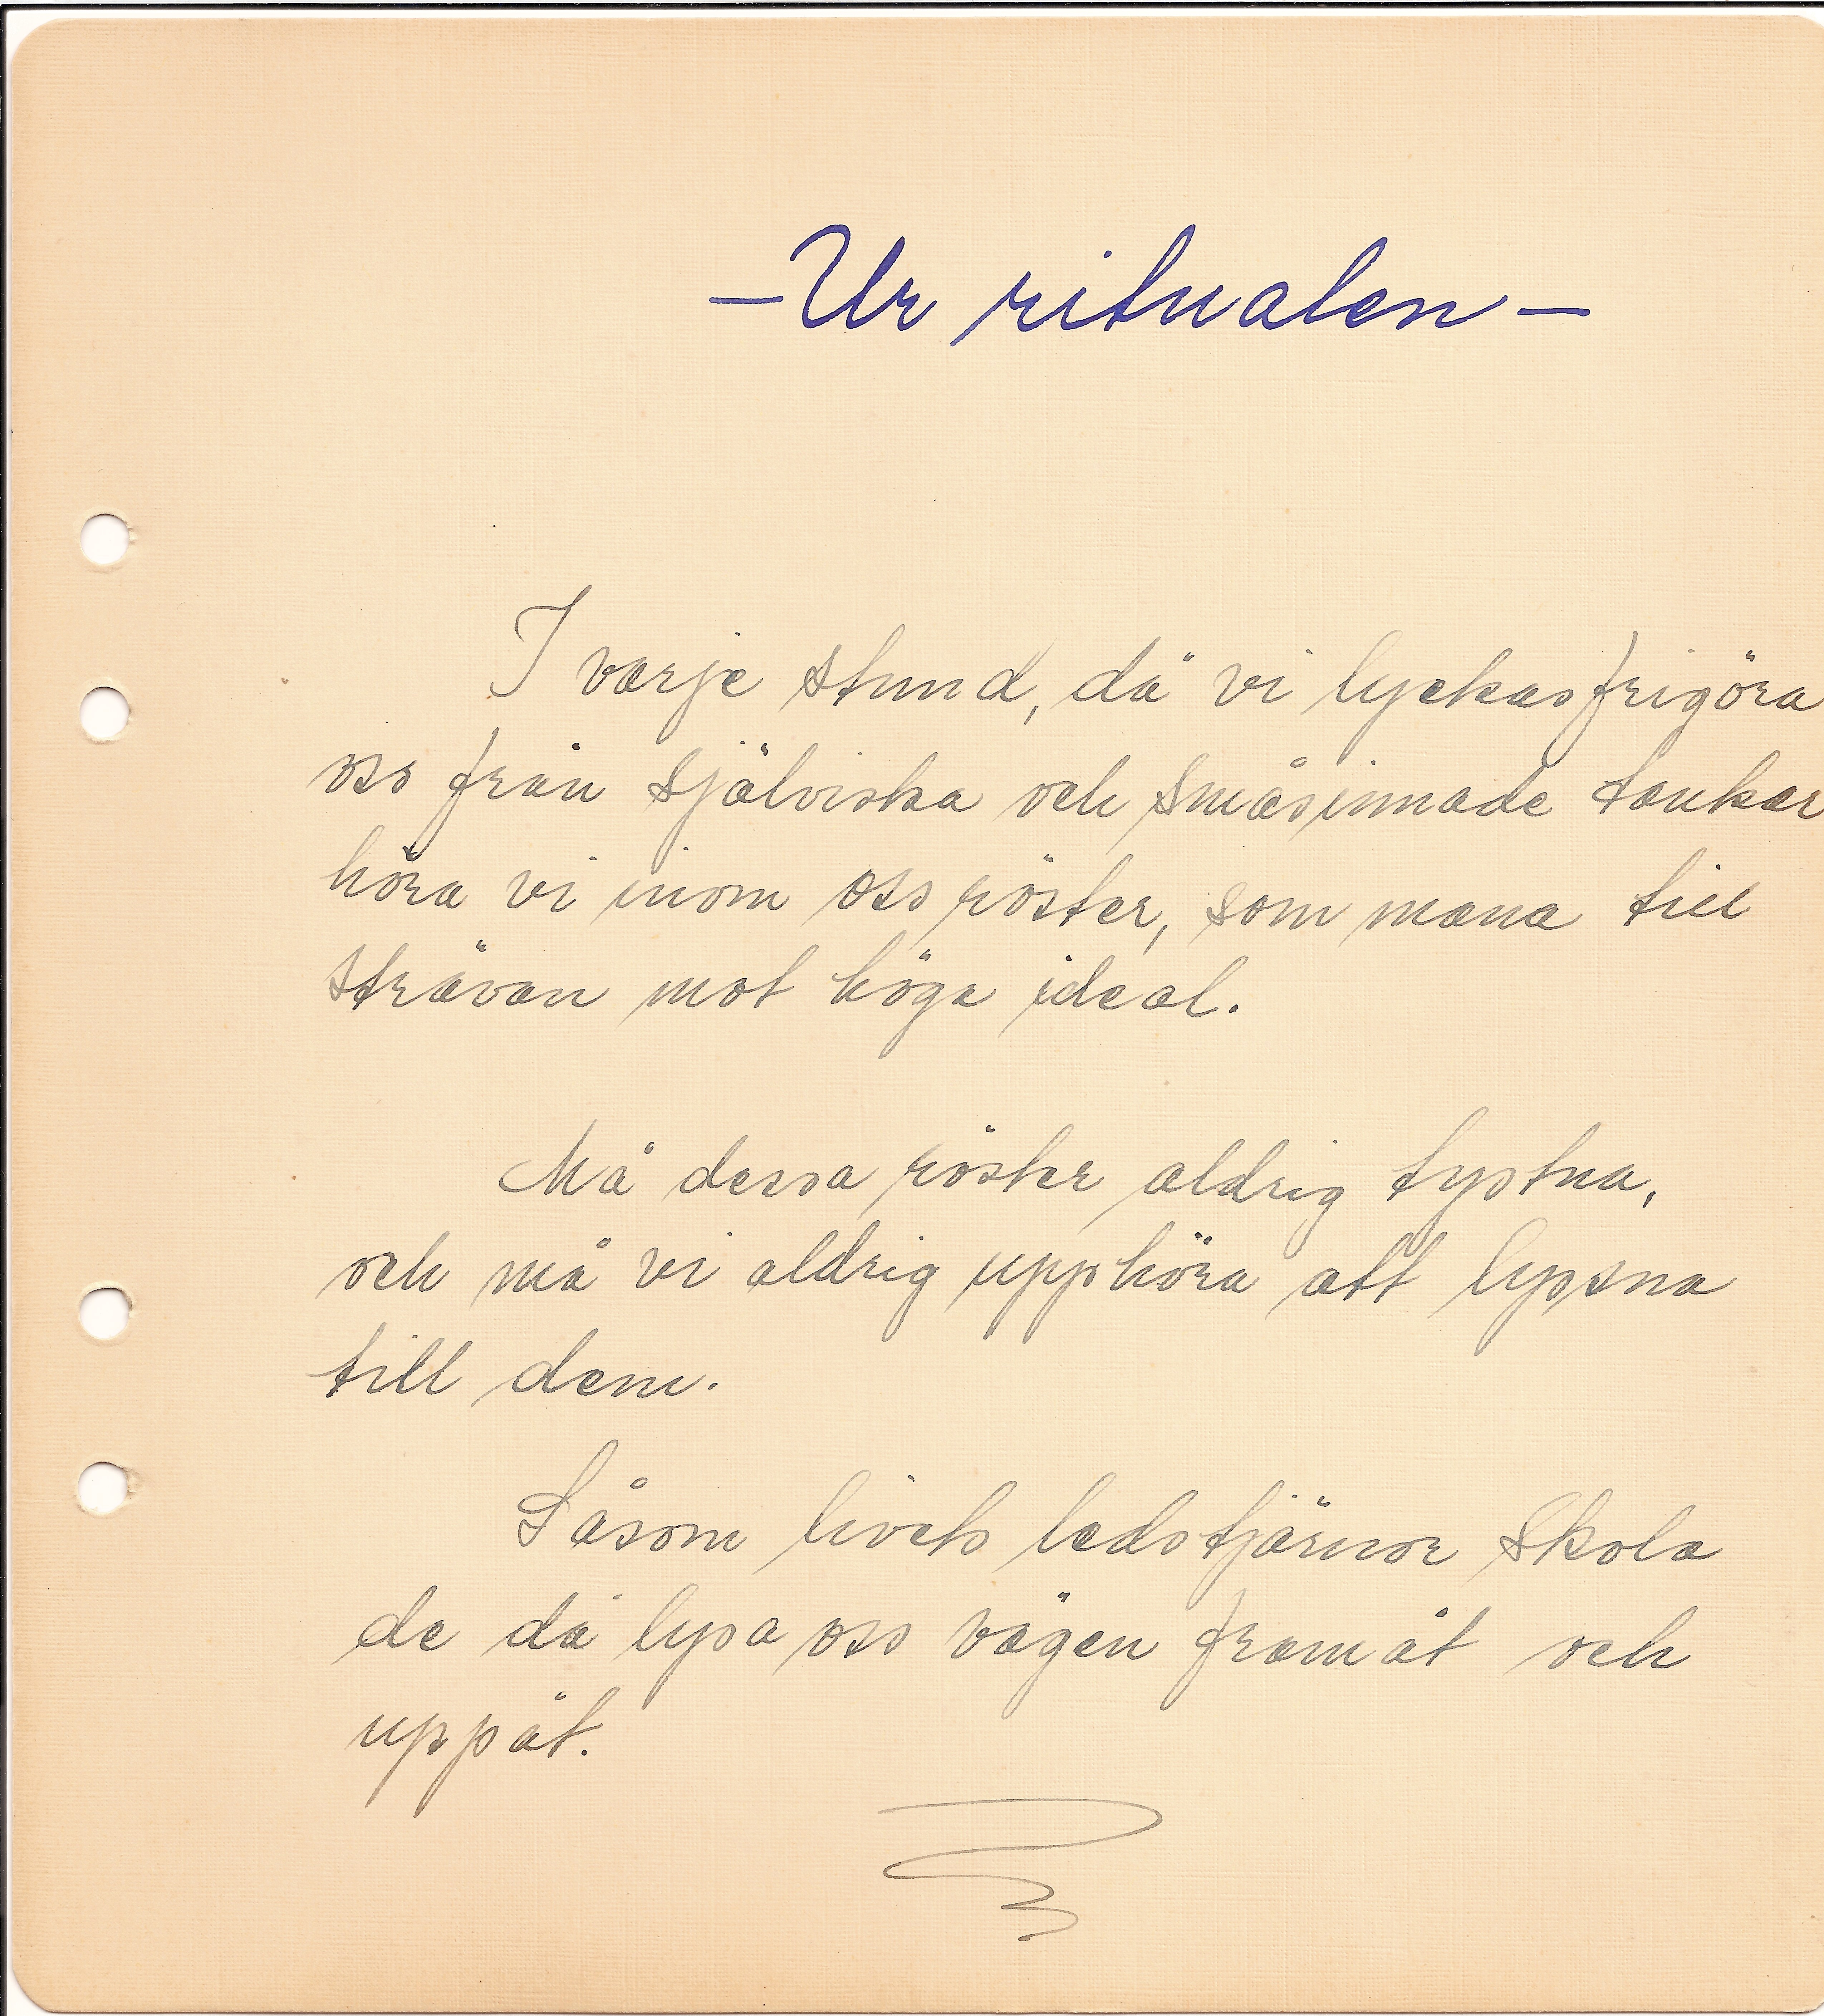 – Ur ritualen –
I varje stund, då vi lyckas frigöra
oss från själviska och småsinnade tankar
höra vi inom oss röster, som mana till
strävan mot höga ideal.
Må dessa röster aldrig tystna,
och må vi aldrig upphöra att lyssna
till dem.
Såsom livets ledstjärnor skola
de då lysa oss vägen framåt och
uppåt.